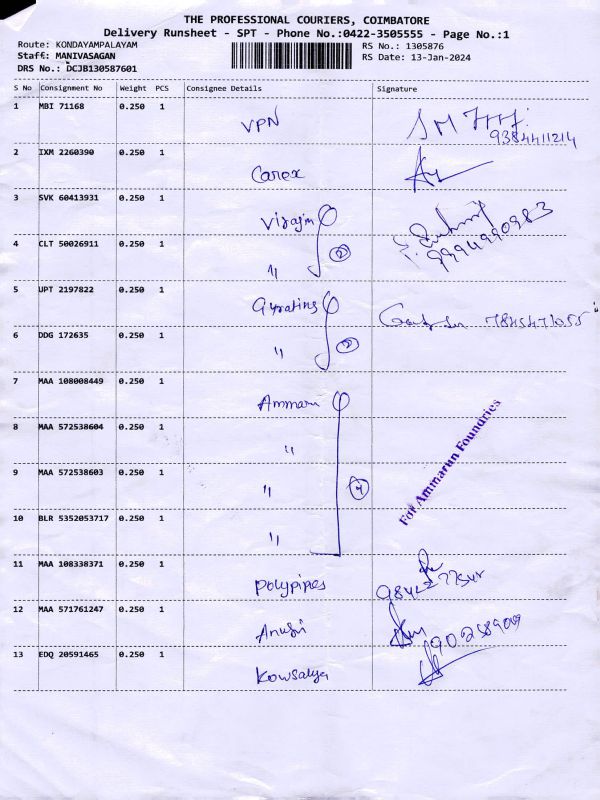 THE PROFESSIONAL COURIERS, COIMBATORE
Delivery Runsheet - SPT - Phone No.:0422-3505555 - Page No.:1
Route: KONDAYAMPALAYAM
RS No.: 1305876
Staff: MANIVASAGAN
RS Date: 13-Jan-2024
DRS No.: DCJB130587601
S No Consignment No Weight PCS Consignee Details Signature
1 MBI 71168 0.250 1 VPN
9384411214
2 IXM 2260390 0.250 1 Carex
3 SVK 60413931 0.250 1
9994990983
4 CLT 50026911 0.250 1 " 2
5 UPT 2197822 0.250 1 7845471055
6 DDG 172635 0.250 1 " 2
7 MAA 108008449 0.250 1
8 MAA 572538604 0.250 1 "
For Ammarun Foundries
9 MAA 572538603 0.250 1 " 4
10 BLR 5352053717 0.250 1 "
11 MAA 108338371 0.250 1 Polypipes
12 MAA 571761247 0.250 1
13 EDQ 20591465 0.250 1 Kowsalya